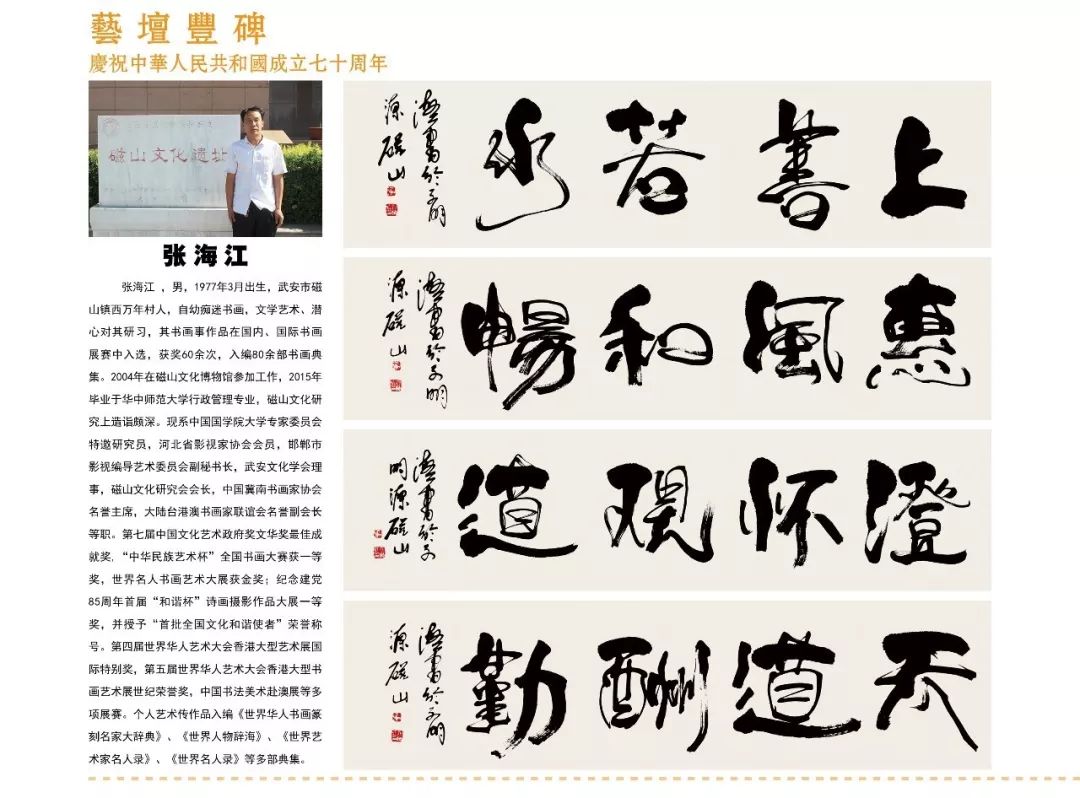 藝壇豐碑
慶祝中華人民共和國成立七十周年
磁山文化遗址
张海江
张海江 ，男，1977年3月出生，武安市磁
山镇西万年村人，自幼痴迷书画，文学艺术、潜
心对其研习，其书画事作品在国内、国际书画
展赛中入选，获奖60余次，入编80余部书画典
集。2004年在磁山文化博物馆参加工作，2015年
毕业于华中师范大学行政管理专业，磁山文化研
究上造诣颇深。现系中国国学院大学专家委员会
特邀研究员，河北省影视家协会会员，邯郸市
影视编导艺术委员会副秘书长，武安文化学会理
事，磁山文化研究会会长，中国冀南书画家协会
名誉主席，大陆台港澳书画家联谊会名誉副会长
等职。第七届中国文化艺术政府奖文华奖最佳成
就奖，“中华民族艺术杯”全国书画大赛获一等
奖，世界名人书画艺术大展获金奖；纪念建党
85周年首届“和谐杯”诗画摄影作品大展一等
奖，并授予“首批全国文化和谐使者”荣誉称
号。第四届世界华人艺术大会香港大型艺术展国
际特别奖，第五届世界华人艺术大会香港大型书
画艺术展世纪荣誉奖，中国书法美术赴澳展等多
项展赛。个人艺术传作品入编《世界华人书画篆
刻名家大辞典》、《世界人物辞海》、《世界艺
术家名人录》、《世界名人录》等多部典集。
上善若水
書於文明
源磁山
惠風和暢
書於文明
源磁山
澄怀观道
書於文
明源磁山
天道酬勤
書於文明
源磁山